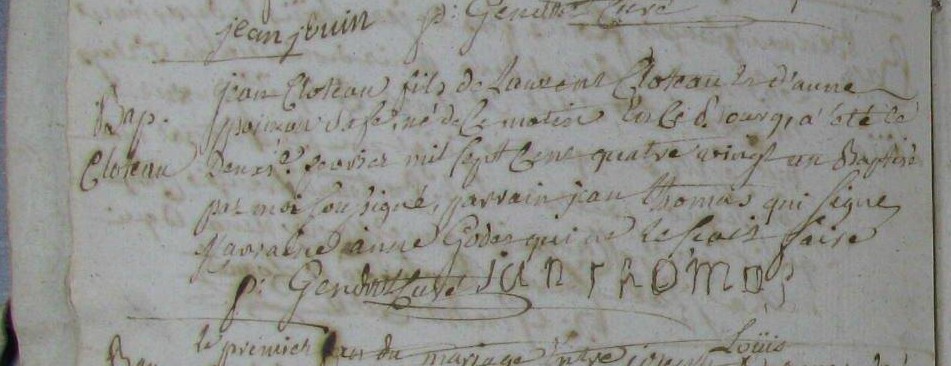 jean jouin p: Gendron Curé
jean Cloteau fils de Laurent Cloteau et d'anne
Bap. né de ce matin en ce d. bourg, a été le
Cloteau feuvrier mil sept cent quatre vingt un Baptisé
par moi soussigné, parrain jean thomas qui signe
marraine anne Godet qui ne le scait faire
p: Curé jan thomas
le premier ban du mariage entre Louis